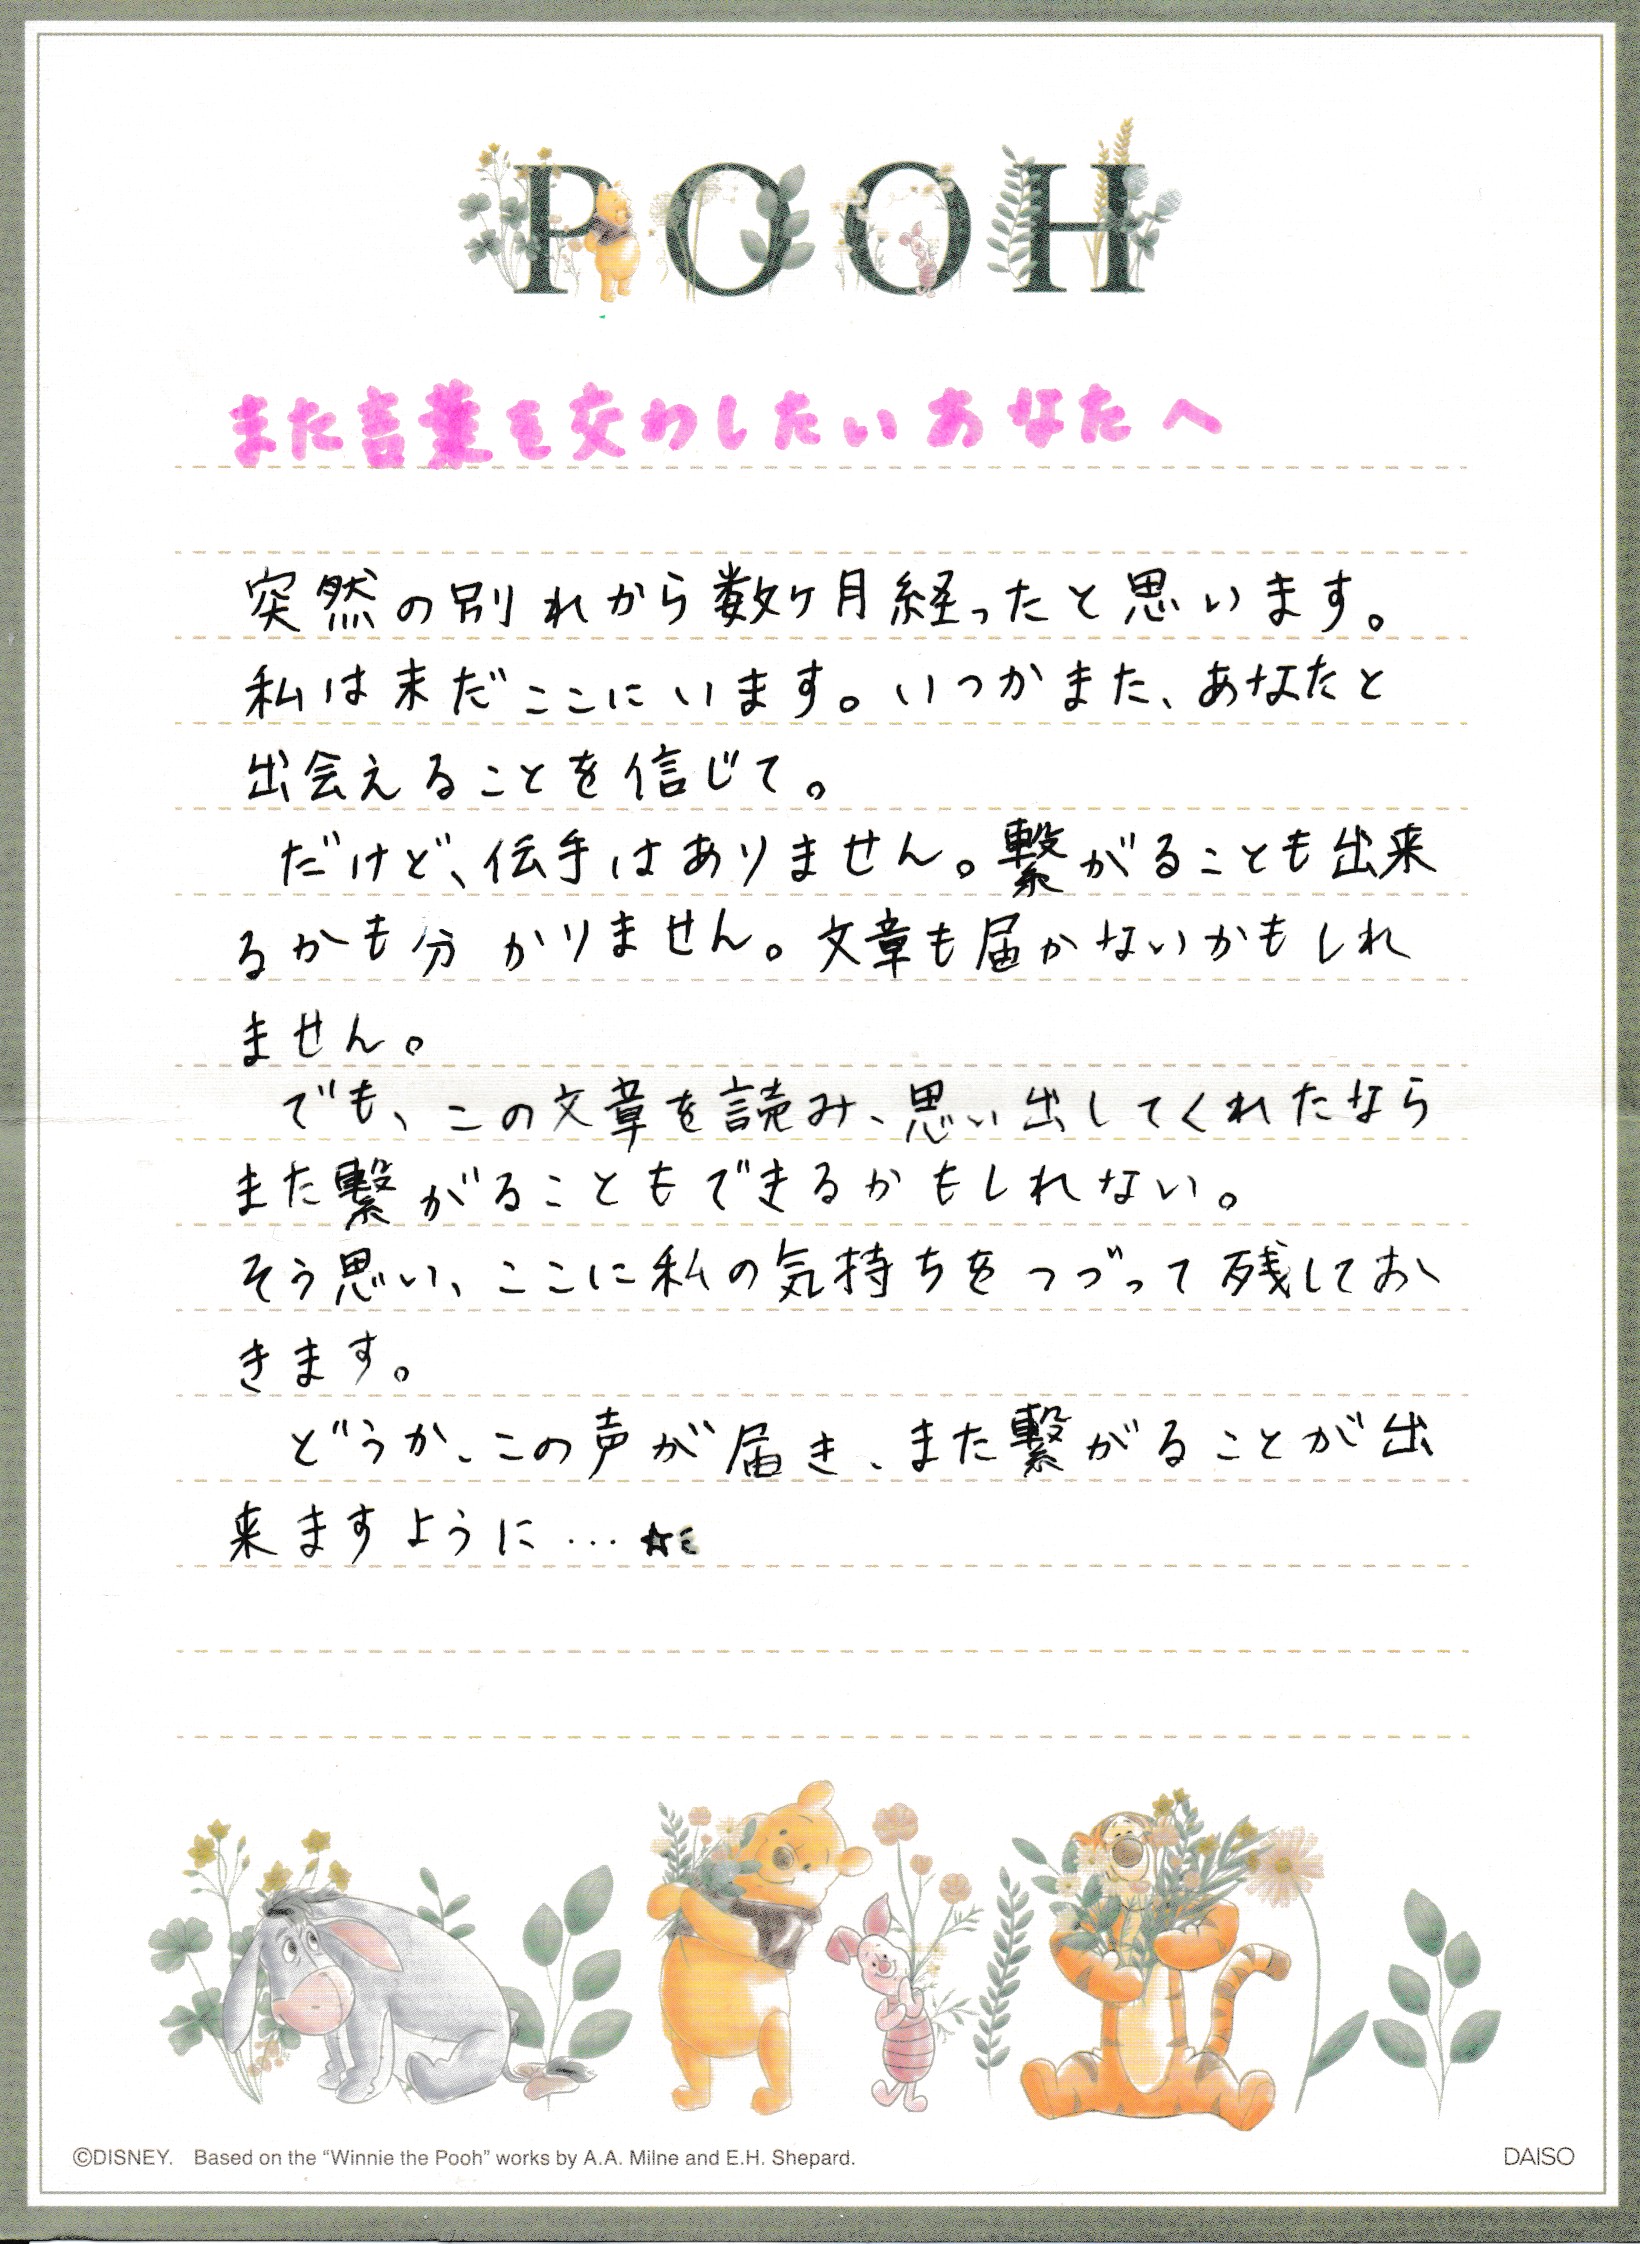 POOH
また言葉を交わしたいあなたへ
突然の別れから数ヶ月経ったと思います。
私は未だここにいます。いつかまた、あなたと
出会えることを信じて。
だけど、伝手はありません。繋がることも出来
るかも分かりません。文章も届かないかもしれ
ません。
でも、この文章を読み、思い出してくれたなら
また繋がることもできるかもしれない。
そう思い、ここに私の気持ちをつづって残してお
きます。
どうか、この声が届き、また繋がることが出
来ますように…☆ミ
©DISNEY. Based on the “Winnie the Pooh” works by A.A. Milne and E.H. Shepard.
DAISO